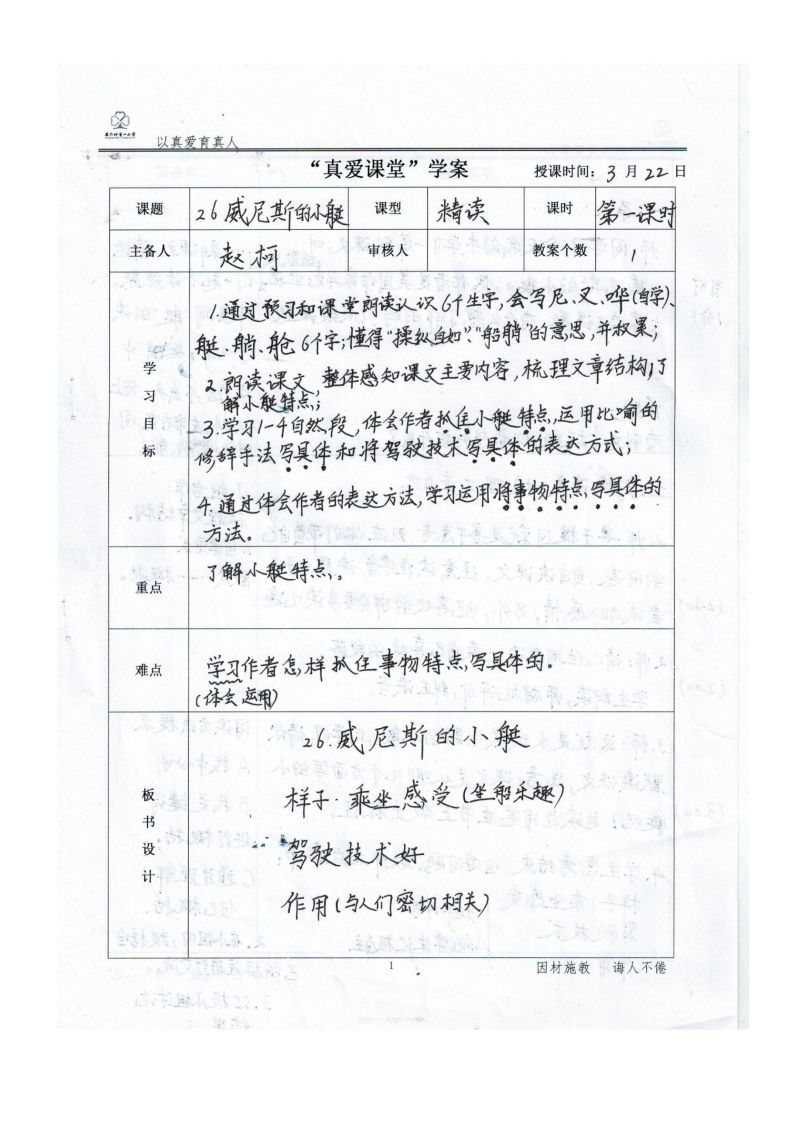 以真爱育真人
“真爱课堂”学案 授课时间：3月22日
课题 26威尼斯的小艇 课型 精读 课时 第一课时
主备人 赵柯 审核人 教案个数 1
学习目标
1.通过预习和课堂朗读认识6个生字，会写尼、叉、哗(自学)、
艇、艄、舱6个字；懂得“操纵自如”、“船艄”的意思，并积累；
2.朗读课文，整体感知课文主要内容，梳理文章结构，了
解小艇特点；
3.学习1-4自然段，体会作者抓住小艇特点，运用比喻的
修辞手法写具体和将驾驶技术写具体的表达方式；
4.通过体会作者的表达方法，学习运用将事物特点写具体的
方法。
重点 了解小艇特点。
难点 学习作者怎样抓住事物特点，写具体的。
(体会 运用)
板书设计
26.威尼斯的小艇
样子·乘坐感受(坐船乐趣)
驾驶技术好
作用(与人们密切相关)
1 因材施教 诲人不倦